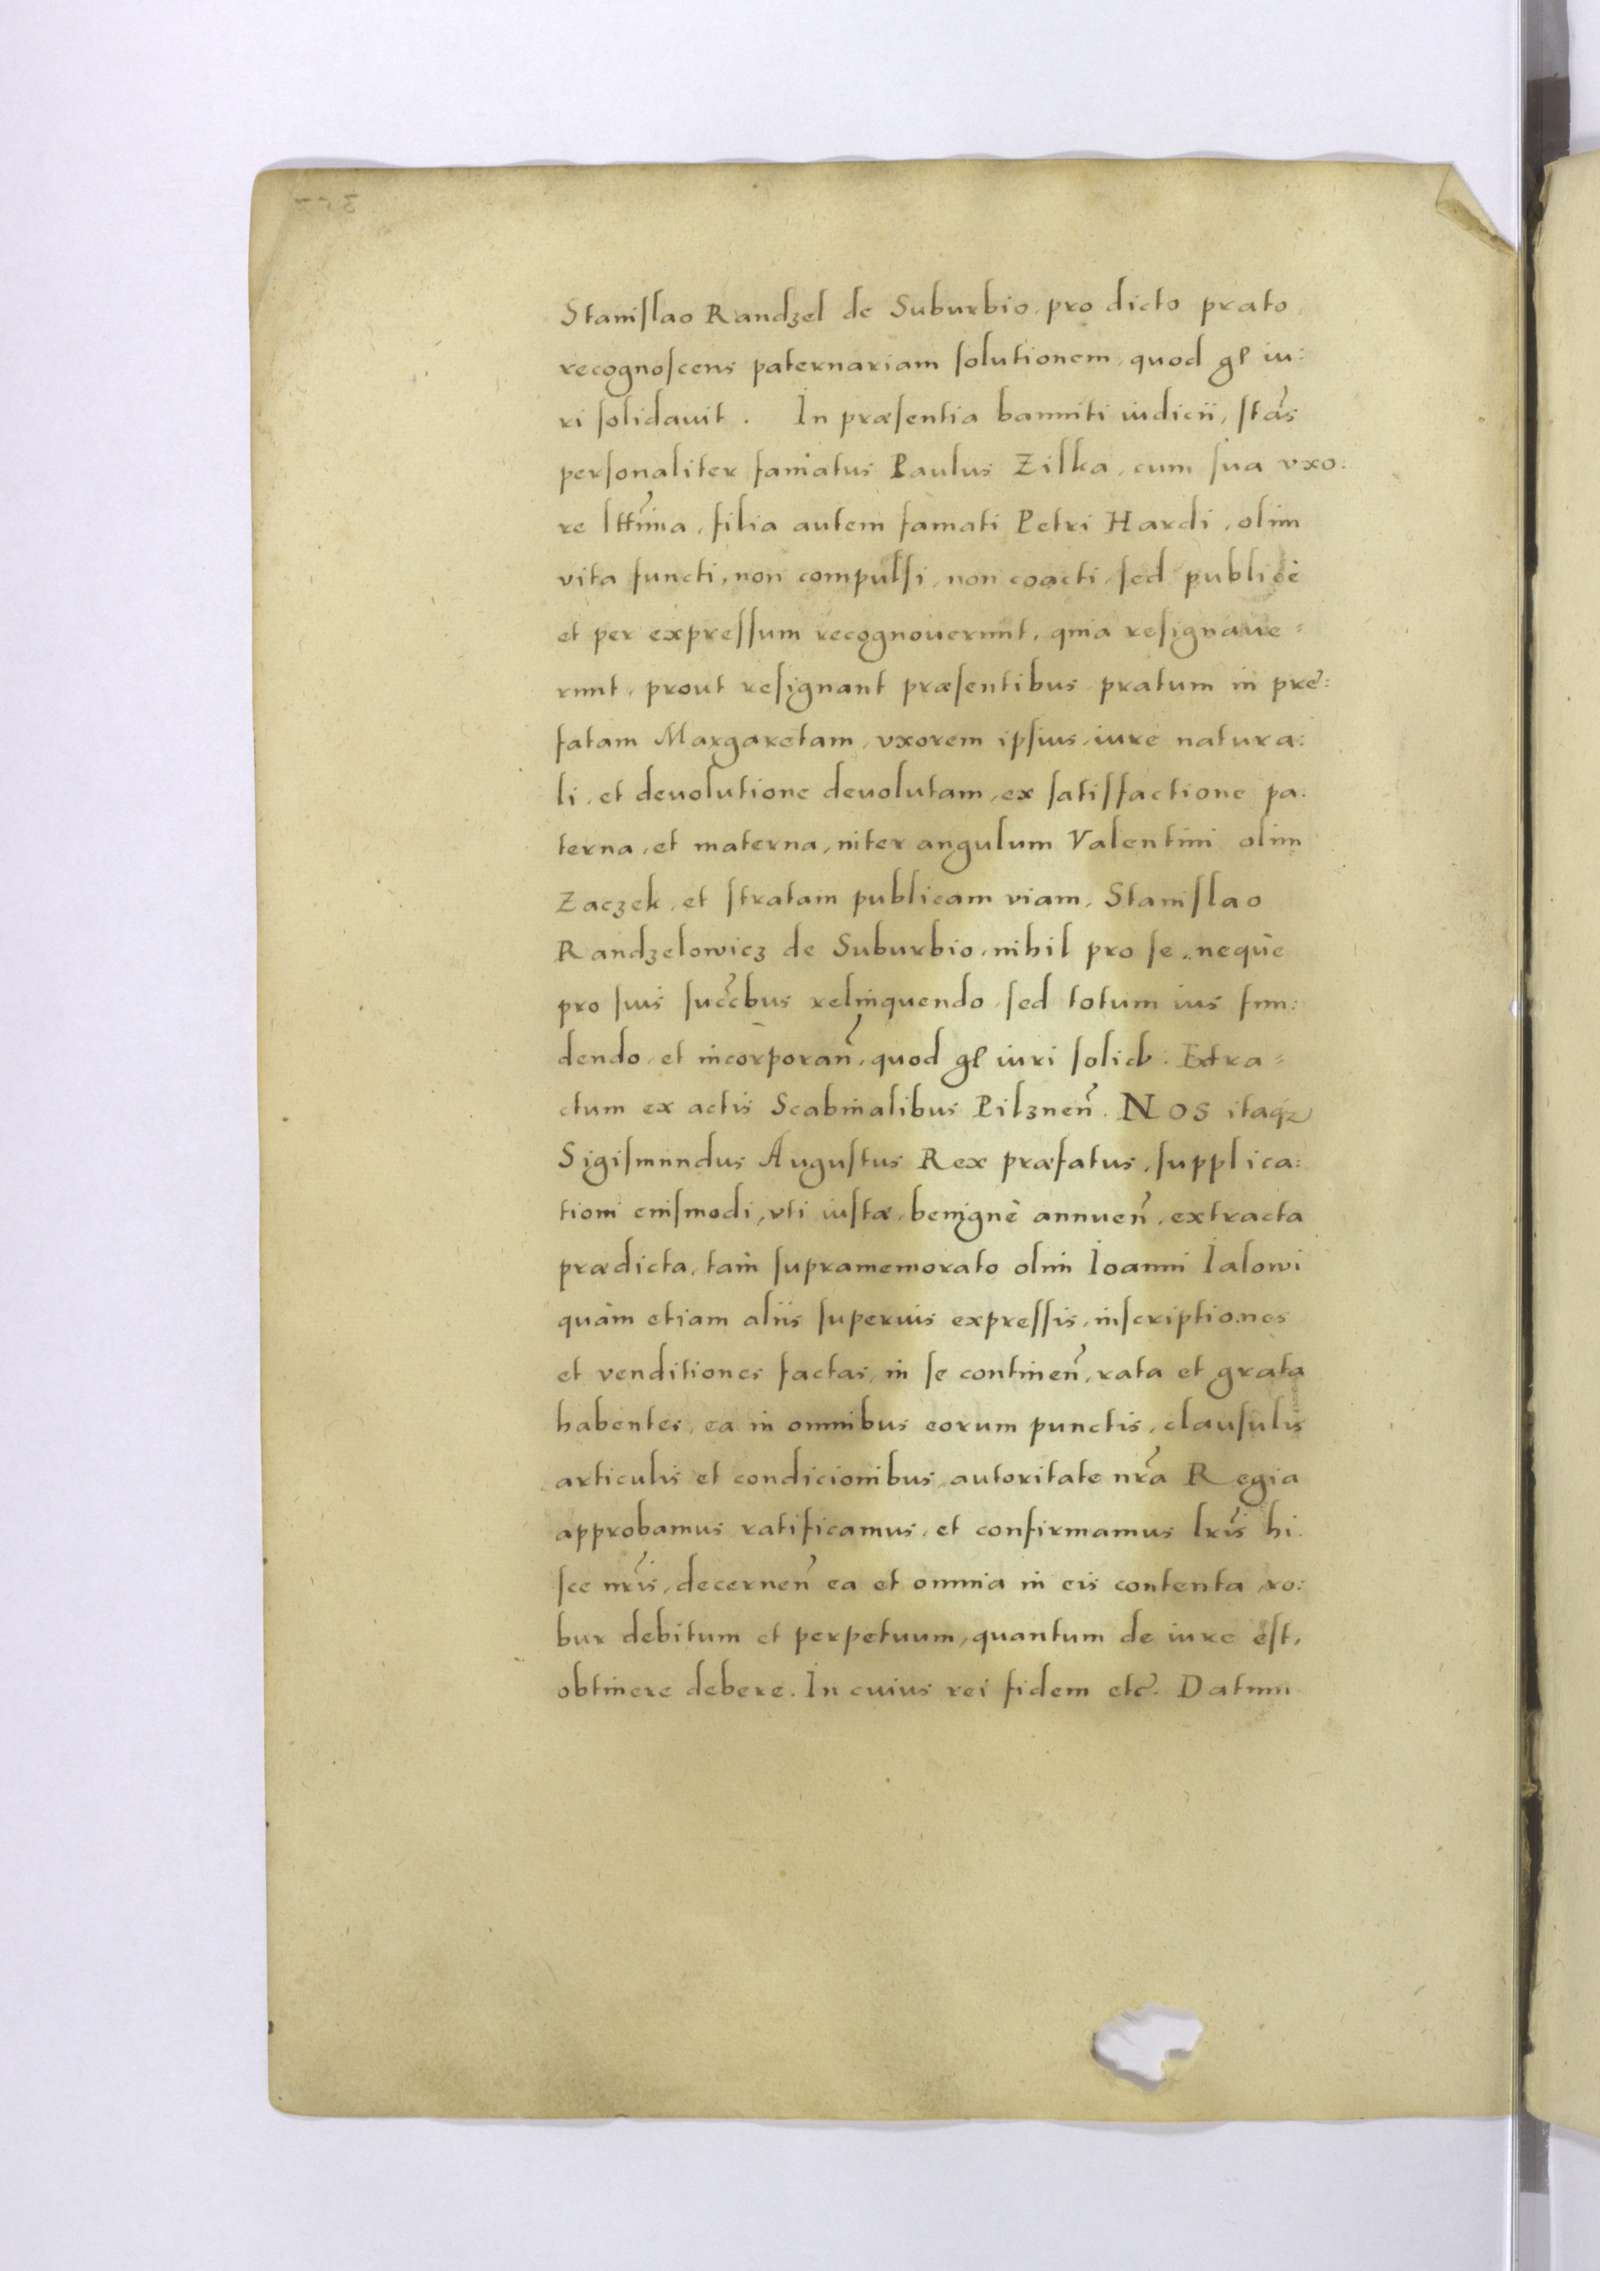 Staniſlao Randzel de Suburbio, pro dicto prato,
recognoſcens paternariam ſolutionem, quod gl iu:
ri ſolidauit. In præſentia banniti iudicii, ſtãs
perſonaliter famatus Paulus Zilka, cum ſua vxo:
re lttima, filia autem famati Petri Hardi, olim
vita functi, non compulſi, non coacti, ſed publicè
et per expreſſum recognouerunt, quia reſignaue=
runt, prout reſignant præſentibus pratum in pre:
fatam Margaretam, vxorem ipſius, iure natura:
li, et deuolutione deuolutam, ex ſatiſfactione pa:
terna, et materna, inter angulum Valentini olim
Zaczek, et ſtratam publicam viam, Staniſlao
Randzelowicz de Suburbio, nihil pro ſe, neque
pro ſuis ſuccẽbus relinquendo, ſed totum ius fun:
dendo, et incorporañ, quod gl iuri ſolidt. Extra=
ctum ex actis Scabinalibus Pilzneñ. NOS itaqz
Sigiſmundus Auguſtus Rex præfatus, ſupplica:
tioni eiuſmodi, vti iuſtæ, benignè annueñ, extracta
prædicta, tam ſupramemorato olim Ioanni Ialowi
quàm etiam aliis ſuperius expreſſis, inſcriptiones
et venditiones factas, in ſe contineñ, rata et grata
habentes, ea in omnibus eorum punctis, clauſulis
articulis et condicionibus, autoritate nr̃a Regia
approbamus ratificamus, et confirmamus lr̃is hi
ſce nr̃is, decerneñ ea et omnia in eis contenta, ro:
bur debitum et perpetuum, quantum de iure eſt,
obtinere debere. In cuius rei fidem etc̃. Datum